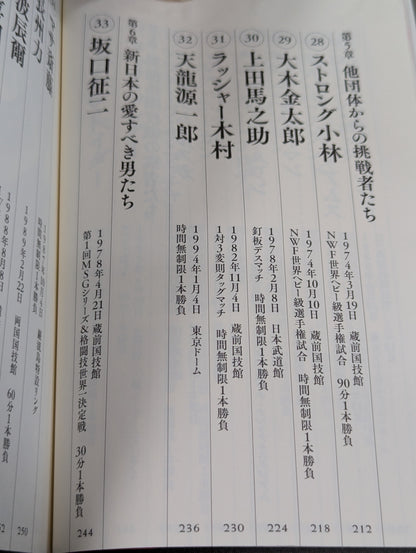 第5章 他団体からの挑戦者たち
28 ストロング小林
1974年3月19日 蔵前国技館
NWF世界ヘビー級選手権試合 90分1本勝負
212
29 大木金太郎
1974年10月10日 蔵前国技館
NWF世界ヘビー級選手権試合 時間無制限1本勝負
218
30 上田馬之助
1978年2月8日 日本武道館
釘板デスマッチ 時間無制限1本勝負
224
31 ラッシャー木村
1982年11月4日 蔵前国技館
1対3変則タッグマッチ 時間無制限1本勝負
230
32 天龍源一郎
1994年1月4日 東京ドーム
時間無制限1本勝負
236
第6章 新日本の愛すべき男たち
33 坂口征二
1978年4月21日 蔵前国技館
第1回MSGシリーズ&格闘技世界一決定戦 30分1本勝負
244
時間無制限1本勝負
250
1989年2月22日 両国国技館
60分1本勝負
1988年8月8日